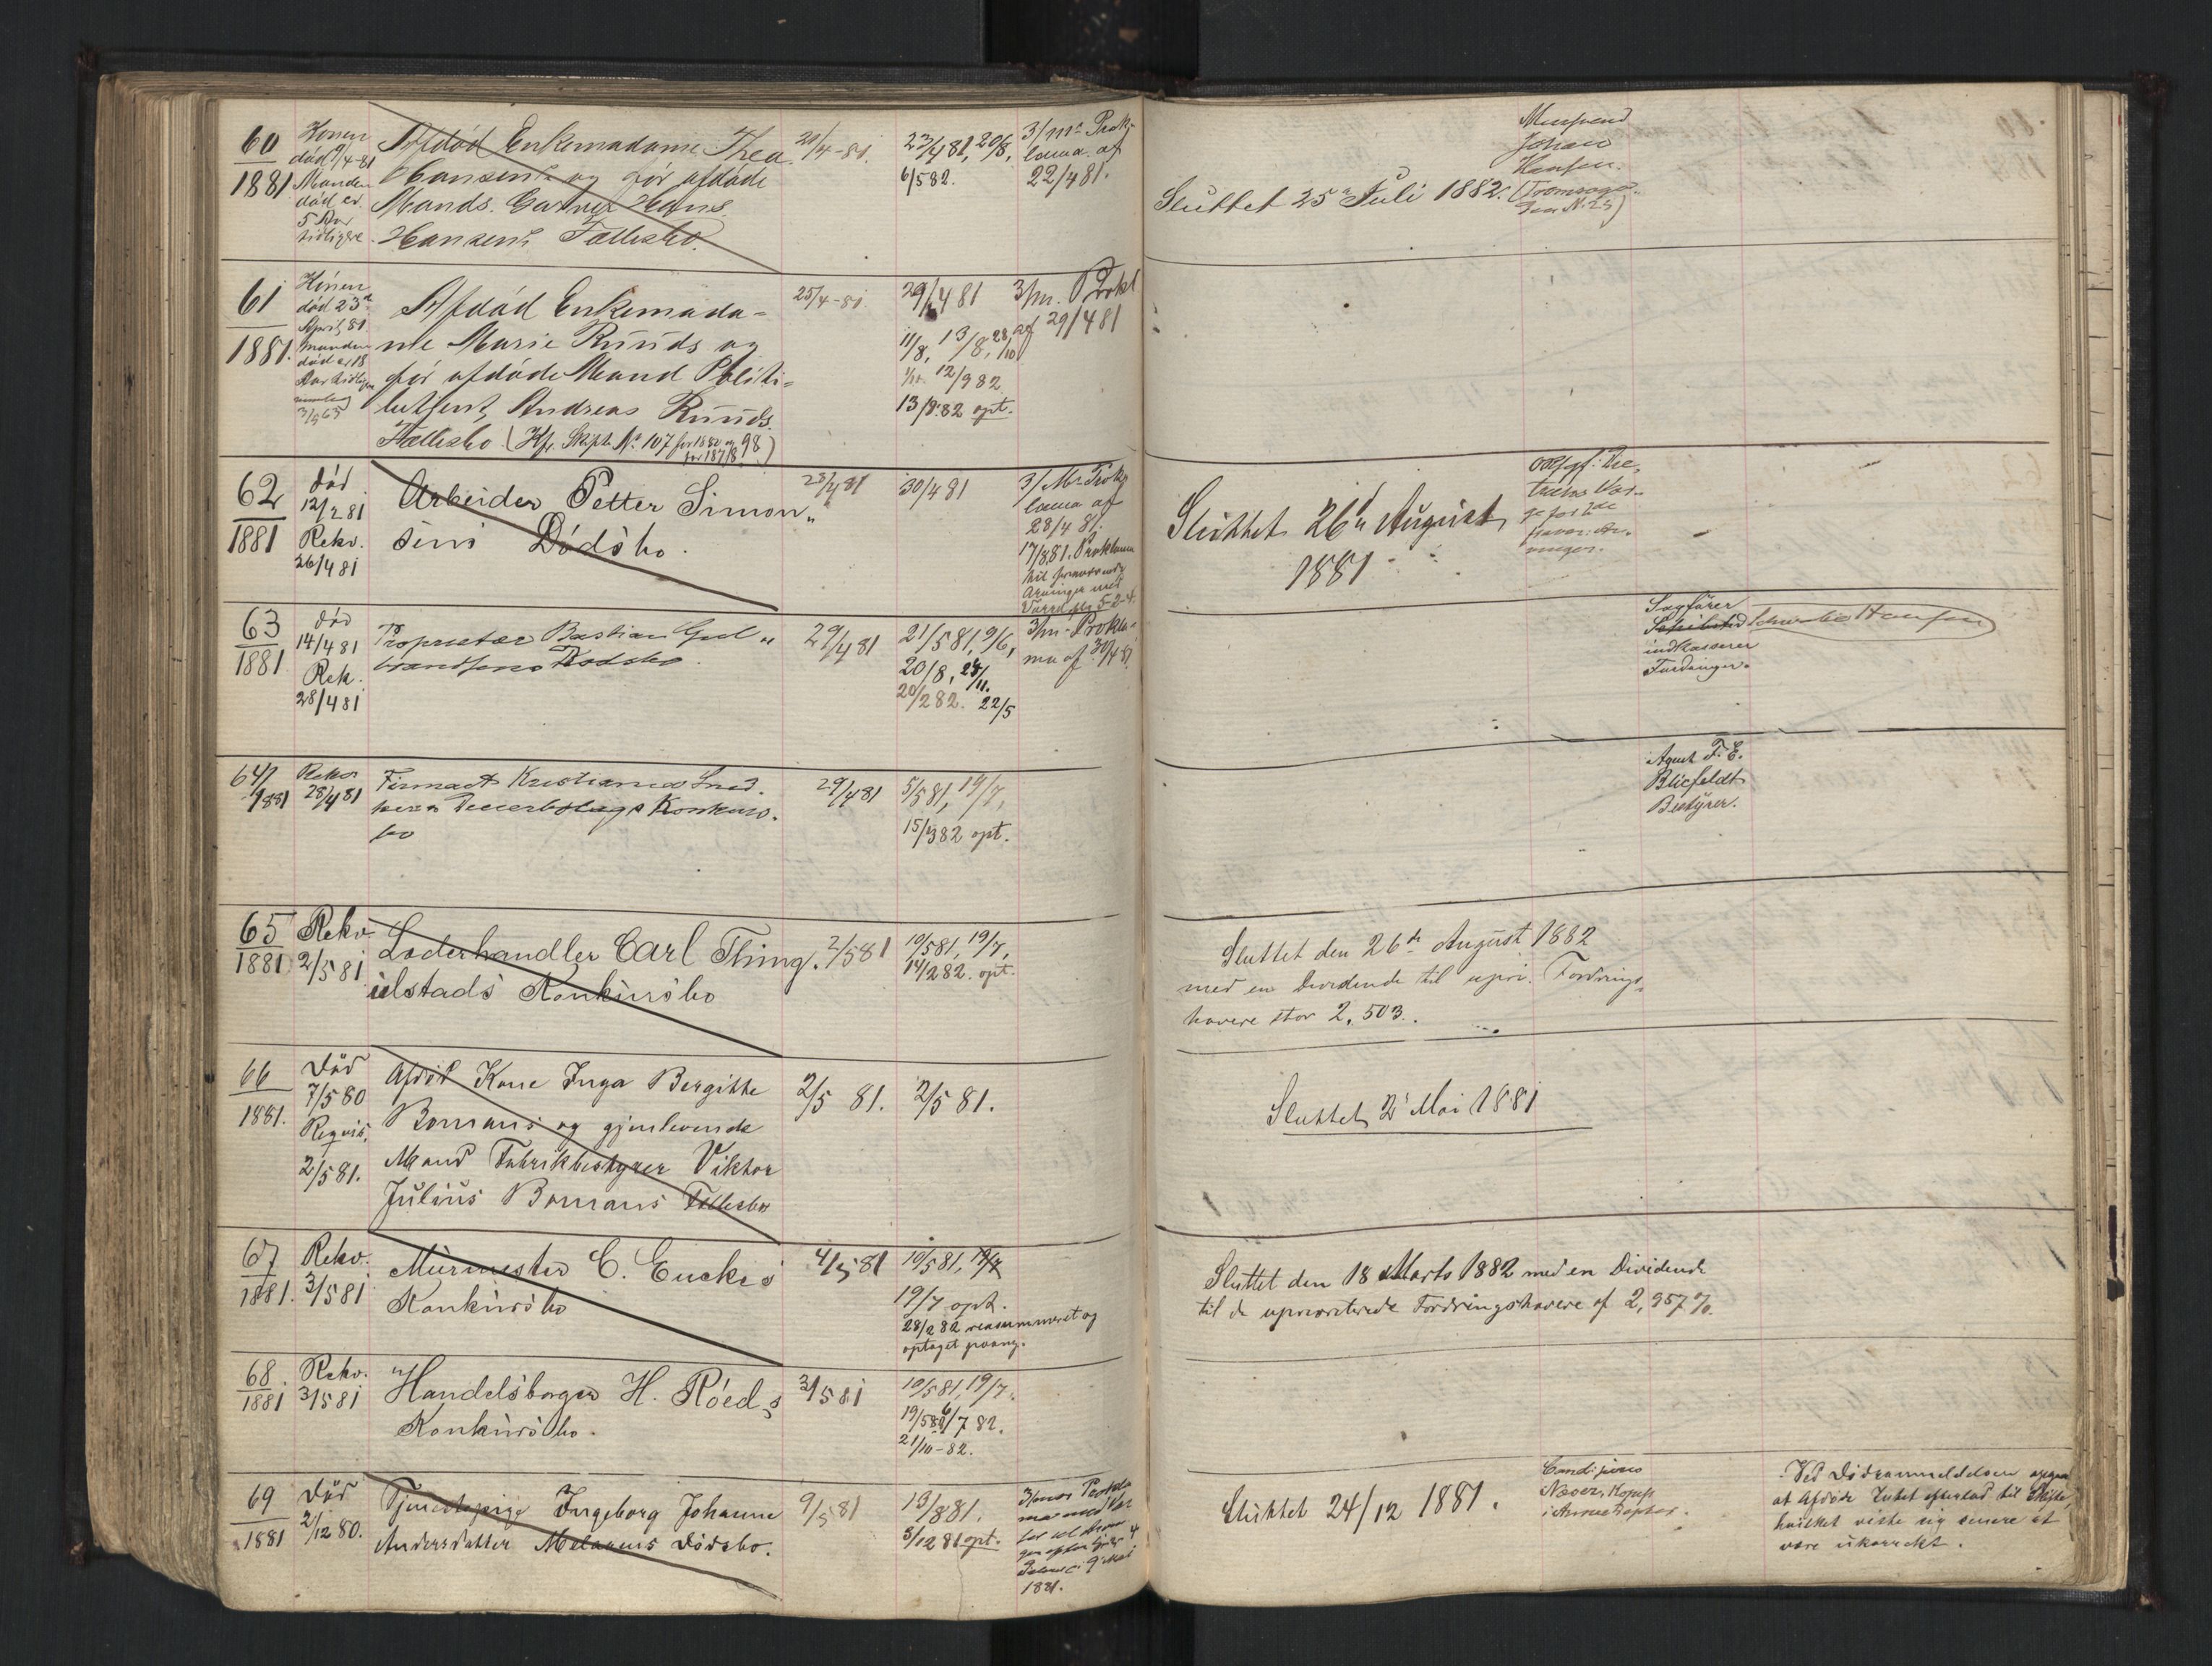 60
1881
Konen
død 9/4-81
Manden
død ca.
5 Aar
tidligere.
Afdød Enkemadame Thea
Hansens og før afdøde
Mands. Gartner Hans
Hansens Fællesbo.
20/4-81.
23/481, 20/8,
6/582.
3/mrs Prok-
lama af
22/481.
Sluttet 25de Juli 1882.
Murſvend
Johan
Hansen.
61
1881.
Konen
død 23de
April 81.
Manden
død ca 18
Aar tidligere
3/9 63
Afdød Enkemada-
me Marie Ruuds og
før afdøde Mand Politi-
betjent Andreas Ruuds.
Fællesbo. (Kfr. Skifte No 107 for 1880 og 98
for 1878)
25/4-81.
29/481
11/8, 13/8, 28/10
12/982
13/982 opt.
3/m. Prokl
af 29/481
62
1881
død
12/281
Rekv.
26/481
Arbeider Petter Simon-
sens Dødsbo.
28/481
30/481
3/Mrs Prok-
lama af
28/4 81.
17/881. Proklama
til fraværende
Arvinger med
Varsel
Sluttet 26de August
1881
63
1881
død
14/481
Rek.
28/481
Proprietær Bastian Gul-
brandsens Dødsbo.
29/481
21/581, 9/6,
20/8, 28/11.
20/282. 22/5
3/m. Prokla-
ma af 30/481
Sagfører
indkasserer
Fordringer.
64
1881
Rekv
28/481
Firmaet Kristiania Sned-
konkurs-
bo
29/481
5/581, 19/7,
15/382 opt.
Agent F. E.
Blicfeldt
Bestyrer.
65
1881
Rekv
2/581
Læderhandler Carl Thing-
ulstads Konkursbo
2/581
10/581, 19/7,
14/282. opt.
Sluttet den 26de August 1882
med en Dividende til upri. Fordrings-
havere stor 2,503.
66
1881.
Død
7/580
Reqvis.
2/581.
Afdød Kone Inga Bergitte
Bomans og gjenlevende
Mand Fabrikbestyrer Viktor
Julius Bomans Fællesbo
2/5 81.
2/581.
Sluttet 2' Mai 1881
67
1881.
Rekv.
3/581
Murmester C. Euckes
Konkursbo
4/581
10/581, 19/7
19/7 opt.
28/282 reasummeret og
optaget paany.
Sluttet den 18 Marts 1882 med en Dividende
til de uprioriterede Fordringshavere af 2,957 %.
68
1881
Rekv.
3/581
Handelsborger H. Röeds
Konkursbo.
3/581
10/581, 19/7.
19/582 6/782.
21/10-82.
69
1881
Død
2/1280.
Tjenestepige Ingeborg Johanne
Andersdatter Melaaens Dødsbo.
9/581
13/881.
3/1281 opt.
9' Mai
1881.
Sluttet 24/12 1881.
Cand: juris
Ved Dødsanmeldelsen opgaves
at Afdøde Intet efterlod til Skifte,
hvilket viste sig senere at
være ukorrekt.